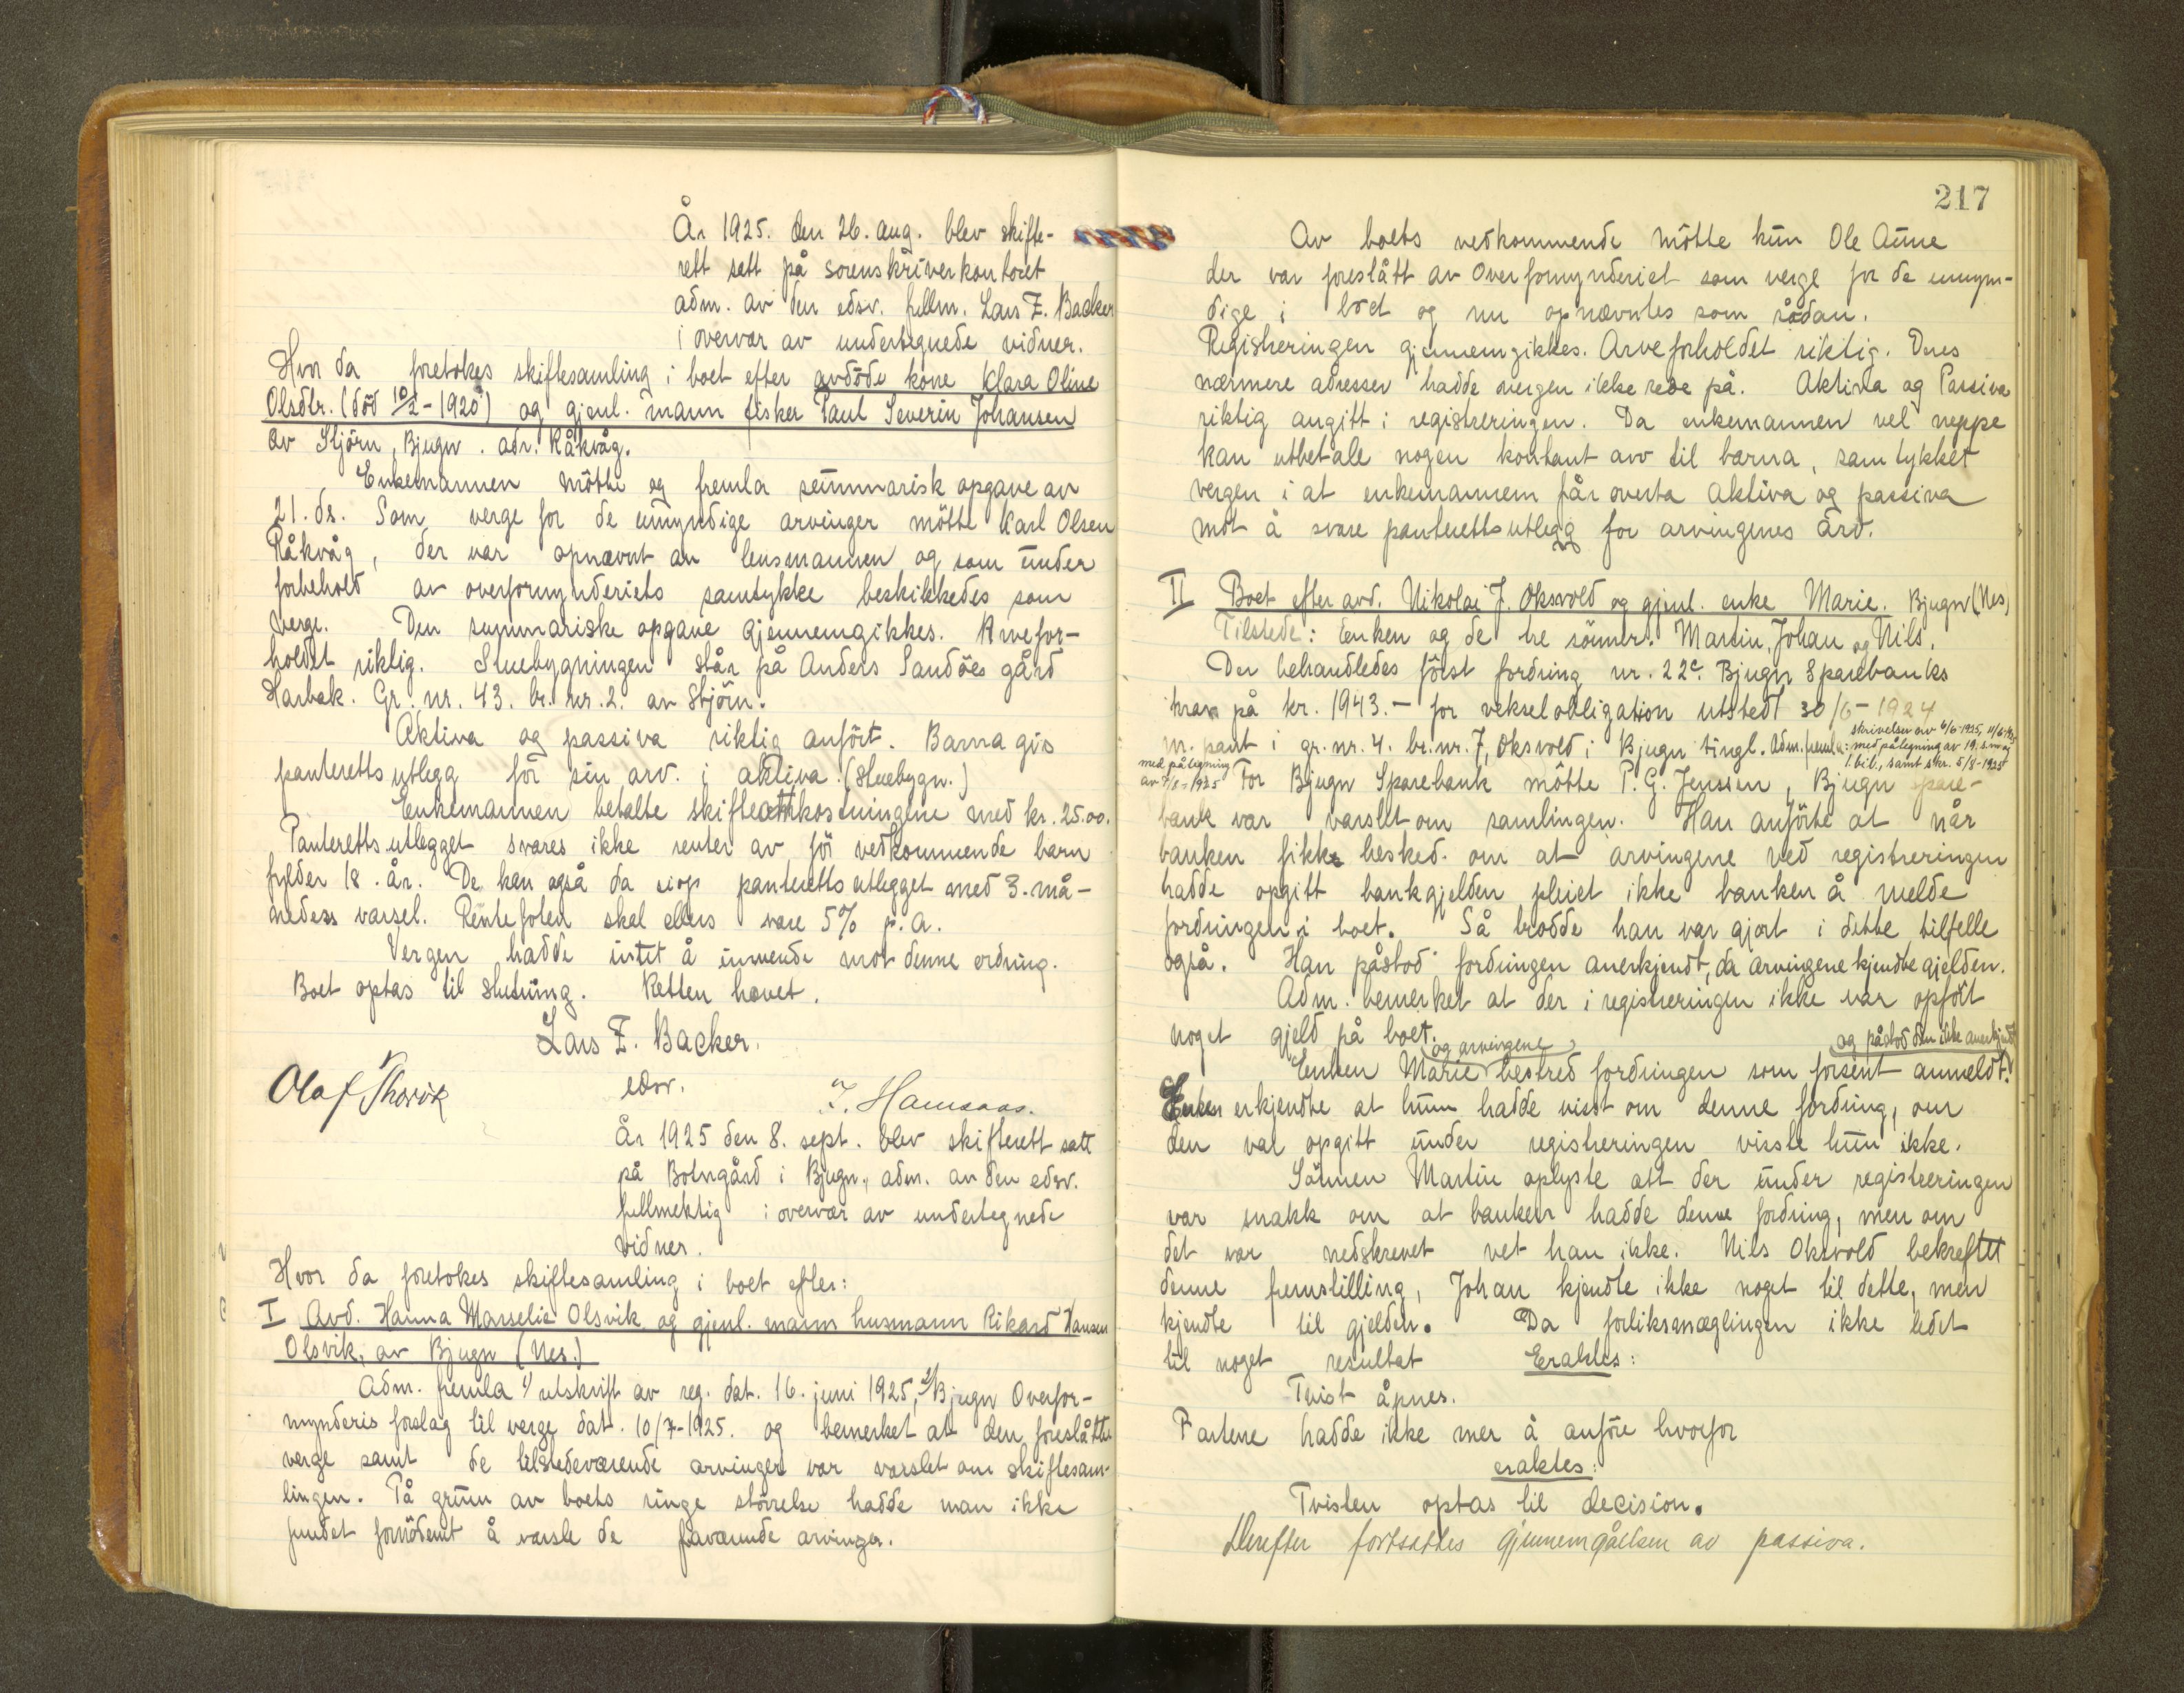 År 1925. den 26. aug. blev skifte-
rett satt på sorenskriverkontoret
adm. av den edsv. fullm. Lars Z. Backer
i overvær av undertegnede vidner.
Hvor da foretokes skiftesamling i boet efter avdöde kone Klara Oline
Olsdtr. (död 10/2-1920) og gjenl. mann fisker Paul Severin Johansen
av Stjörn, Bjugn. adr. Råkvåg.
Enkemannen mötte og fremla summarisk opgave av
21. ds. Som verge for de umyndige arvinger mötte Karl Olsen
Råkvåg, der var opnævnt av lensmannen og som under
forbehold av overformynderiets samtykke beskikkedes som
verge. Den summariske opgave gjennemgikkes. Arvefor-
holdet riktig. Stuebygningen står på Anders Sandöes gård
Harbak. Gr. nr. 43. br. nr. 2. av Stjörn.
Aktiva og passiva riktig anfört. Barna gis
panterettsutlegg för sin arv. i aktiva. (Stuebygn.)
Enkemannen betalte skifteomkostningene med kr. 25.00.
Panterettsutlegget svares ikke renter av för vedkommende barn
fylder 18. år. De kan også da si op panterettsutlegget med 3. må-
neders varsel. Rentefoten skal ellers være 5% p.a.
Vergen hadde intet å innvende mot denne ordning.
Boet optas til slutning. Retten hævet.
Lars Z. Backer.
edsv.
Olaf
J. Hamsaas.
År 1925 den 8. sept. blev skifterett satt
på Botngård i Bjugn, adm. av den edsv.
fullmektig i overvær av undertegnede
vidner.
Hvor da foretokes skiftesamling i boet efter:
I Avd. Hanna Marselie Olsvik og gjenl. mann husmann Rikard Hansen
Olsvik, av Bjugn (Nes.)
Adm. fremla 1) utskrift av reg. dat. 16. juni 1925, 2) Bjugn Overfor-
mynderis forslag til verge dat. 10/7-1925. og bemerket at den foreslåtte
verge samt de tilstedeværende arvinger var varslet om skiftesam-
lingen. På grunn av boets ringe störrelse hadde man ikke
fundet fornödent å varsle de fraværende arvinger.
217
Av boets vedkommende mötte kun Ole Aune
der var foreslått av Overformynderiet som verge for de umyn-
dige i boet og nu opnævntes som sådan.
Registreringen gjennemgikkes. Arveforholdet riktig. Dnes
nærmere adresser hadde vergen ikke rede på. Aktiva og Passiva
riktig angitt i registreringen. Da enkemannen vel neppe
kan utbetale nogen kontant arv til barna, samtykket
vergen i at enkemannem får overta aktiva og passiva
mot å svare panterettsutlegg for arvingenes arv.
II Boet efter avd. Nikolai J. Oksvold og gjenl. enke Marie. Bjugn (Nes)
Tilstede: Enken og de tre sönner. Martin, Johan og Nils.
Der behandledes först fordring nr. 22c. Bjugn Sparebanks
krav på kr. 1943.- for vekselobligation utstedt 30/6-1924
skrivelser av 4/6-1925, 11/6-1925
m. pant i gr. nr. 4. br. nr. 7, Oksvold i Bjugn tingl. Adm. fremla: med påtegning av 19. s.m. og
1. bil., samt skr. 5/8-1925
med påtegning
av 7/8-1925 For Bjugn Sparebank mötte P. G. Jenssen, Bjugn spare-
bank var varslet om samlingen. Han anförte at når
banken fikk besked om at arvingene ved registreringen
hadde opgitt bankgjelden pleiet ikke banken å melde
fordringen i boet. Så trodde han var gjort i dette tilfelle
også. Han påstod fordringen anerkjendt, da arvingene kjendte gjelden.
Adm. bemerket at der i registreringen ikke var opfört
noget gjeld på boet.
og arvingene
og påstod den ikke anerkjendt
Enken Marie bestred fordringen som forsent anmeldt.
Enken erkjendte at hun hadde visst om denne fordring, om
den var opgitt under registreringen visste hun ikke.
Sönnen Martin oplyste att der under registreringen
var snakk om at banken hadde denne fordring, men om
det var nedskrevet vet han ikke. Nils Oksvold bekreftet
denne fremstilling, Johan kjendte ikke noget til dette, men
kjendte til gjelden. Da forliksmæglingen ikke ledet
til noget resultat Eraktes:
Tvist åpnes.
Partene hadde ikke mer å anföre hvorfor
eraktes:
Tvisten optas til decision.
Derefter fortsattes gjennemgåelsen av passiva.